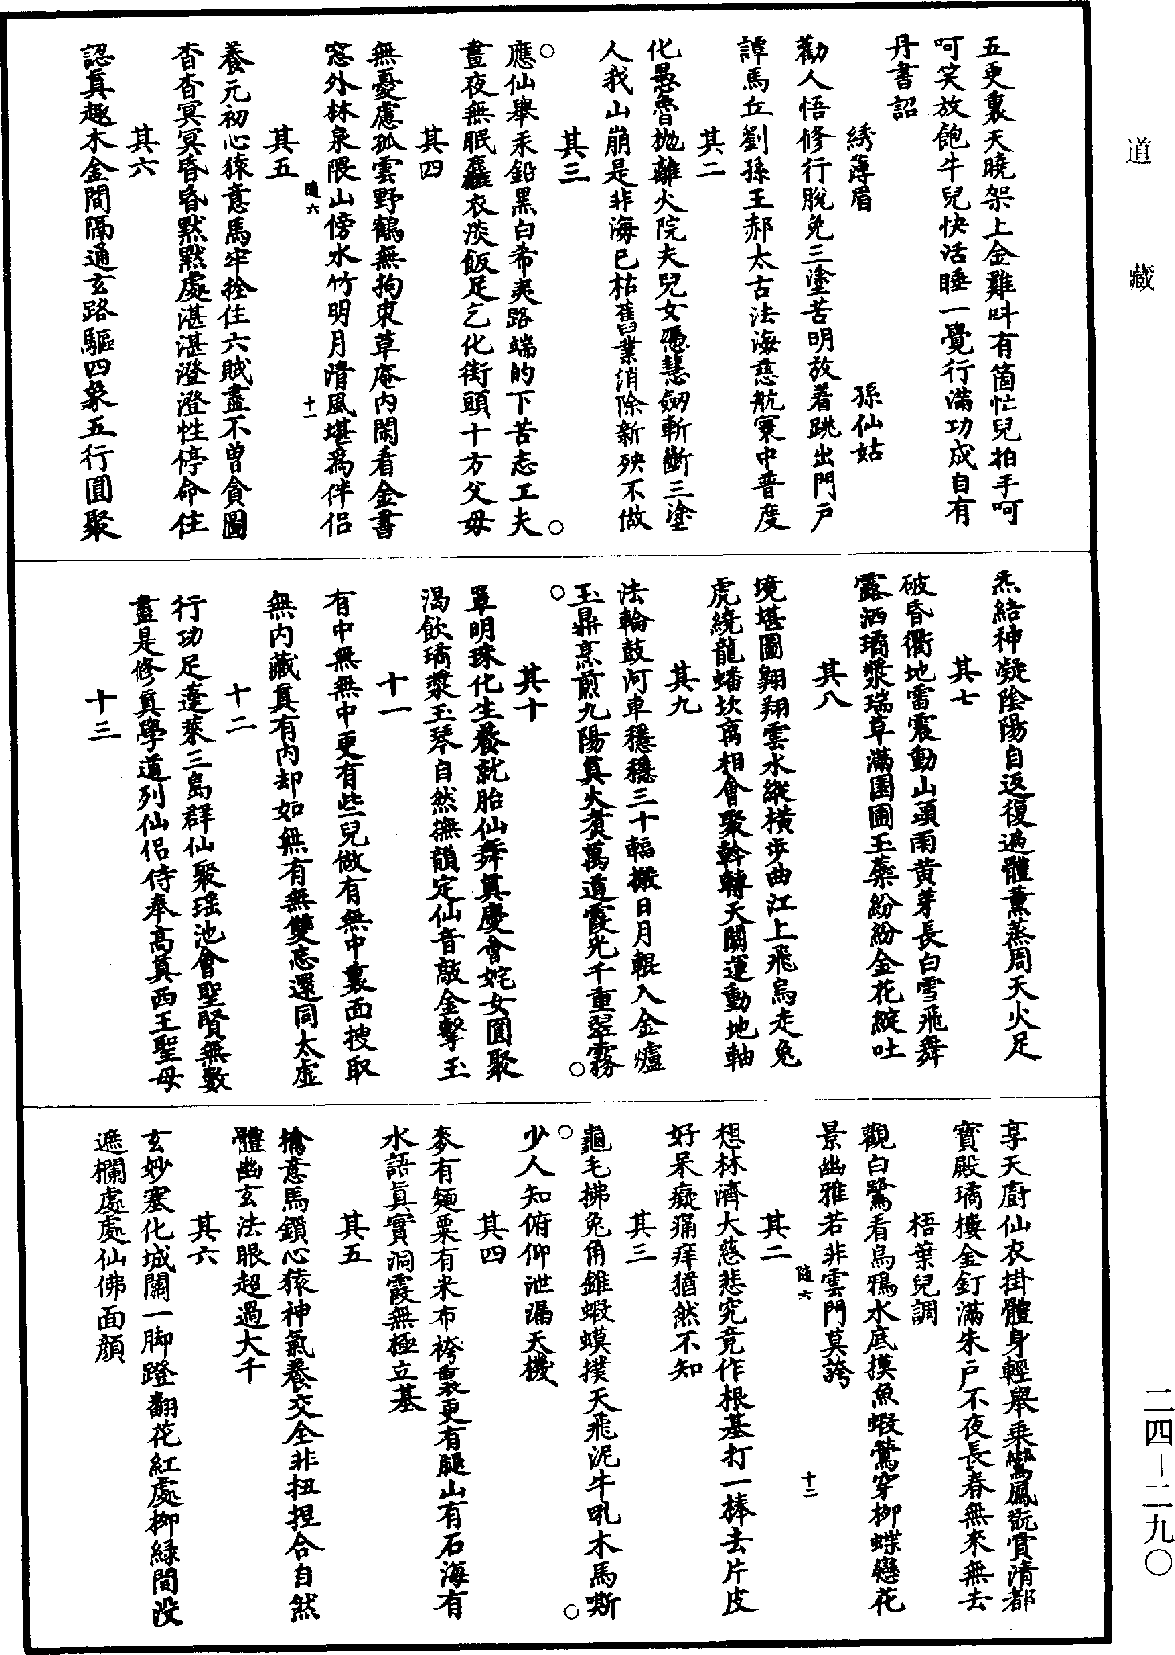 道藏
五更裏天曉架上金雞呌有箇忙兒拍手呵
呵笑放飽牛兒快活睡一覺行滿功成自有
丹書詔
綉薄眉 孫仙姑
勸人悟修行脫免三塗苦明放着跳出門戶
譚馬丘劉孫王郝太古法海慈航寰中普度
其二
化愚魯拋離火院夫兒女憑慧劒斬斷三塗
人我山崩是非海已枯舊業消除新殃不做
其三
應仙舉汞鉛黑白希夷路端的下苦志工夫
晝夜無眠麤衣淡飯足乞化街頭十方父母
其四
無憂慮孤雲野鶴無拘束草庵內閑看金書
窓外林泉隈山傍水竹明月清風堪爲伴侣
隨六 十一
其五
養元初心猿意馬牢拴住六賊盡不曾貪圖
杳杳冥冥昏昏默默處湛湛澄澄性停命住
其六
認真趣木金間隔通玄路驅四象五行圓聚
炁結神凝陰陽自返復遍體薰蒸周天火足
其七
破昏衢地雷震動山頭雨黄芽長白雪飛舞
露洒璚漿瑞草滿園圃玉蘂紛紛金花綻吐
其八
境堪圖翱翔雲水縱橫步曲江上飛烏走兔
虎繞龍蟠坎离相會聚斡轉天關運動地軸
其九
法輪鼓河車穩穩三十輻搬日月輥入金爐
玉鼎烹煎九陽真火煑萬道霞光千重翠霧
其十
罩明珠化生養就胎仙舞真慶會姹女圓聚
渴飲璚漿玉琴自然撫韻定仙音敲金擊玉
十一
有中無無中更有些兒做有無中裏面搜取
無內藏真有內却如無有無雙忘還同太虛
十二
行功足蓬萊三島群仙聚瑶池會聖賢無數
盡是修真學道列仙侣侍奉高真西王聖母
十三
享天廚仙衣掛體身輕舉乘鸞鳳翫賞清都
寶殿璚樓金釘滿朱戶不夜長春無來無去
梧葉兒調
觀白鷺看烏鴉水底摸魚蝦鶯穿柳蝶戀花
景幽雅若非雲門莫誇
隨六 十二
其二
想林濟大慈悲究竟作根基打一棒去片皮
好呆癡痛痒猶然不知
其三
龜毛拂兔角錐蝦蟆撲天飛泥牛吼木馬嘶
少人知俯仰泄漏天機
其四
麥有麵粟有米布袴裏更有腿山有石海有
水語真實洞霞無極立基
其五
擒意馬鎖心猿神氣養交全非扭揑合自然
體幽玄法眼超過大千
其六
玄妙塞化城關一脚蹬翻花紅處柳綠間没
遮欄處處仙佛面顔
二四—二九〇